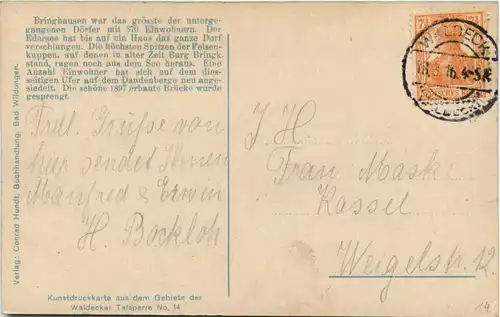 Bringhausen war das grösste der unterge-
gangenen Dörfer mit 570 Einwohnern. Der
Edersee hat bis auf ein Haus das ganze Dorf
verschlungen. Die höchsten Spitzen der Felsen-
kuppen, auf denen in alter Zeit Burg Bringk.
stand, ragen noch aus dem See heraus. Eine
Anzahl Einwohner hat sich auf dem dies-
seitigen Ufer auf dem Daudenberge neu ange-
siedelt. Die schöne 1897 erbaute Brücke wurde
gesprengt.
Frdl. Grüsse von
hier sendet Ihnen
Manfred & Erwin
H. Bockloh
Verlag: Conrad Hundt, Buchhandlung, Bad Wildungen.
Kunstdruckkarte aus dem Gebiete der
Waldecker Talsperre No. 14
7½ 7½
WALDECK
4-5N
J. H.
Frau Maske
Kassel
Weigelstr. 12
14